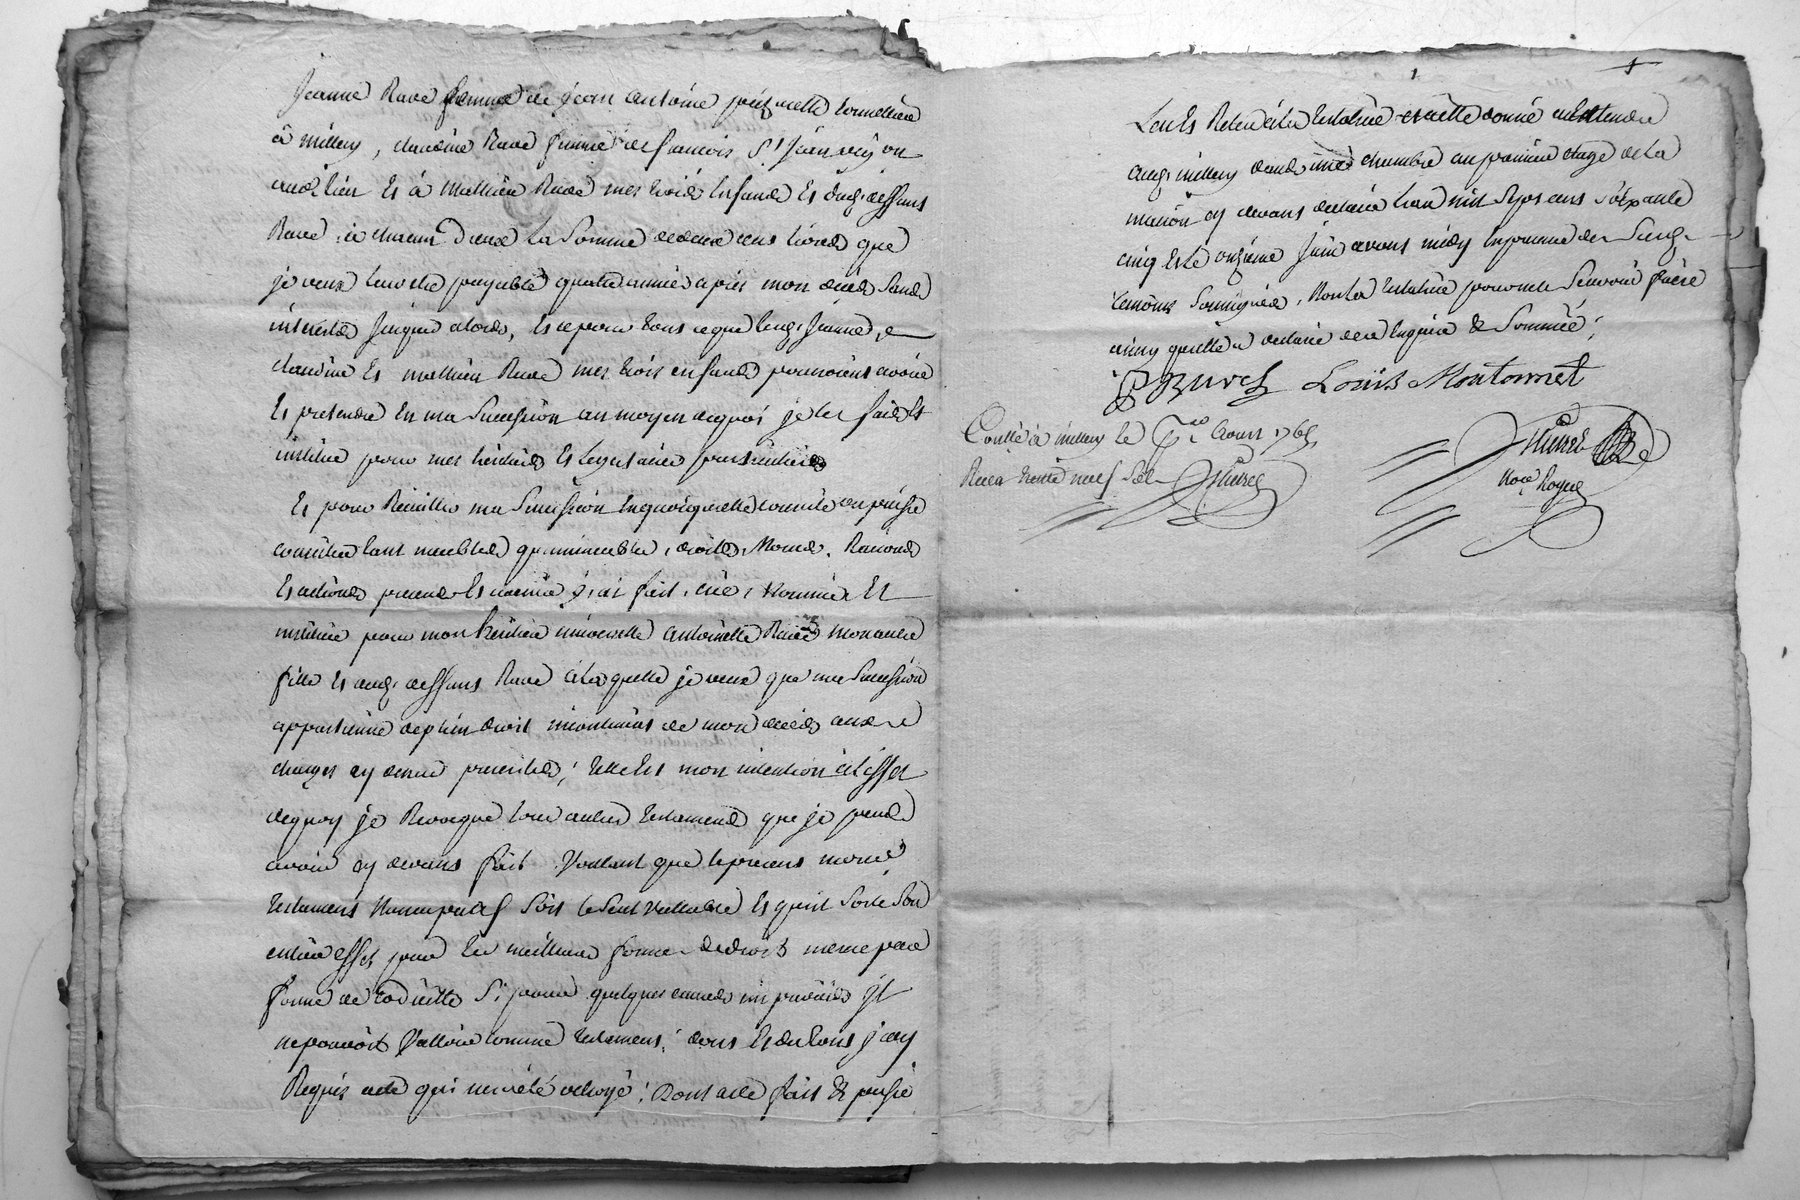 Jeanne Rave femme de jean antoine tonnellier
à millery, claudine Rave femme de francois St jean vigneron
audit lieu Et à mathieu Rave mes trois Enfands Et dudt deffunt
Rave, à chacun d'eux La Somme de deux cens livres que
je veux leur être payable quatre année après mon décéd sands
intérêts jusques alors, Et ce pour tous ce que lesd. Jeanne,
claudine Et mathieu Rave mes trois enfands pourroient avoir
Et pretendre En ma Succession au moyen de quoi je les fais Et
institue pour mes héritiers Et legataires particuliers
Et pour Reccueillir ma Succession En quoi quelle consiste ou puisse
consister tant meubles qu'immeubles, droits, Noms, Raisons
Et actions presents Et avenir j'ai fait, créé, Nommée Et
institue pour mon héritière universelle antoinette Rave mon autre
fille Et dudt deffunt Rave à Laquelle je veux que ma Succession
appartienne de plein droit incontinent de mon décéds aux
charges cy dessus prescrites; telle Est mon intention à L'effet
de quoy je Revoque tous autres testaments que je peuds
avoir cy devant fait Voullant que le présent mon
testament Nuncupatif Soit le Seul Vallable Et qu'il Sorte Son
entier effet pour la meilleure forme de droit même par
forme de codicille Si pour quelques causes imprévües il
ne pouvoit Valloir comme testament; dont Et du tout j'ay
Requis acte qui m'a été octroyé; Dont acte fait & passé
Leu Et Releu à la testatrice et à elle donné à Entendre
audt millery dands une chambre au premier étage de La
maison cy devant declarée L'an mil Sept cens Soixante
cinq Et le onzième Juin avant midy En présence des Susdt
témoins Soussignés, Non La testatrice pour ne Scavoir faire
ainsy quelle a declaré de ce Enquise & Sommée;
Louis Montonnet
Controllé à millery le août 1765
Receu trente neuf Sols
Nore Royal